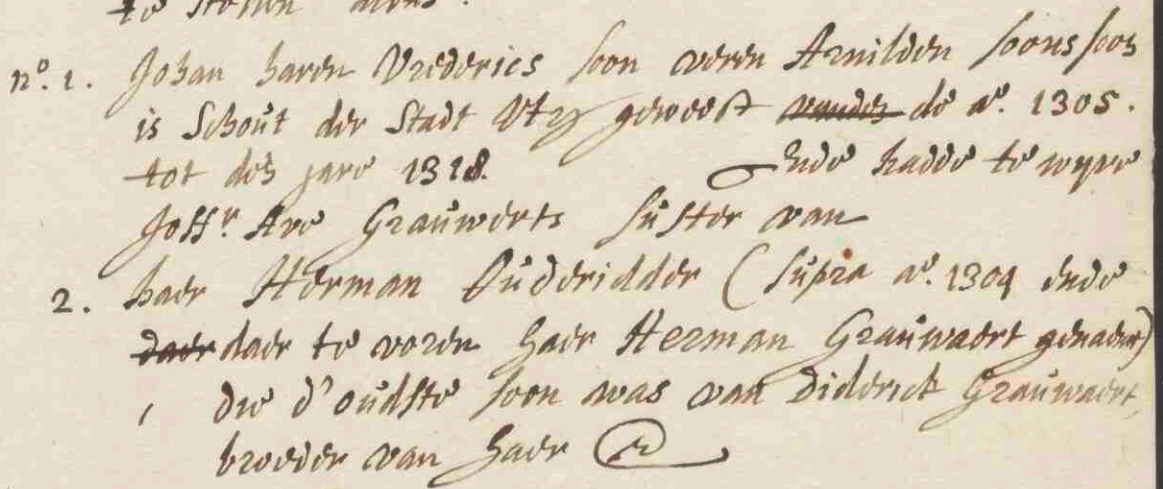 te
n.º 1. Johan haren Vrederics soon veren Arnilden soons soon
is Schoút der Stadt Vtr geweest vanden de aº. 1305.
tot des jare 1318. Ende hadde te wyve
Joffr. Ave Graúwerts súster van
2. haer Herman Oúderidder (súpra aº. 1304 ende
daer daer te voren haer Herman Graúwaert genaemt)
die d'oúdste soon was van Diderick Graúwaert,
broeder van haer